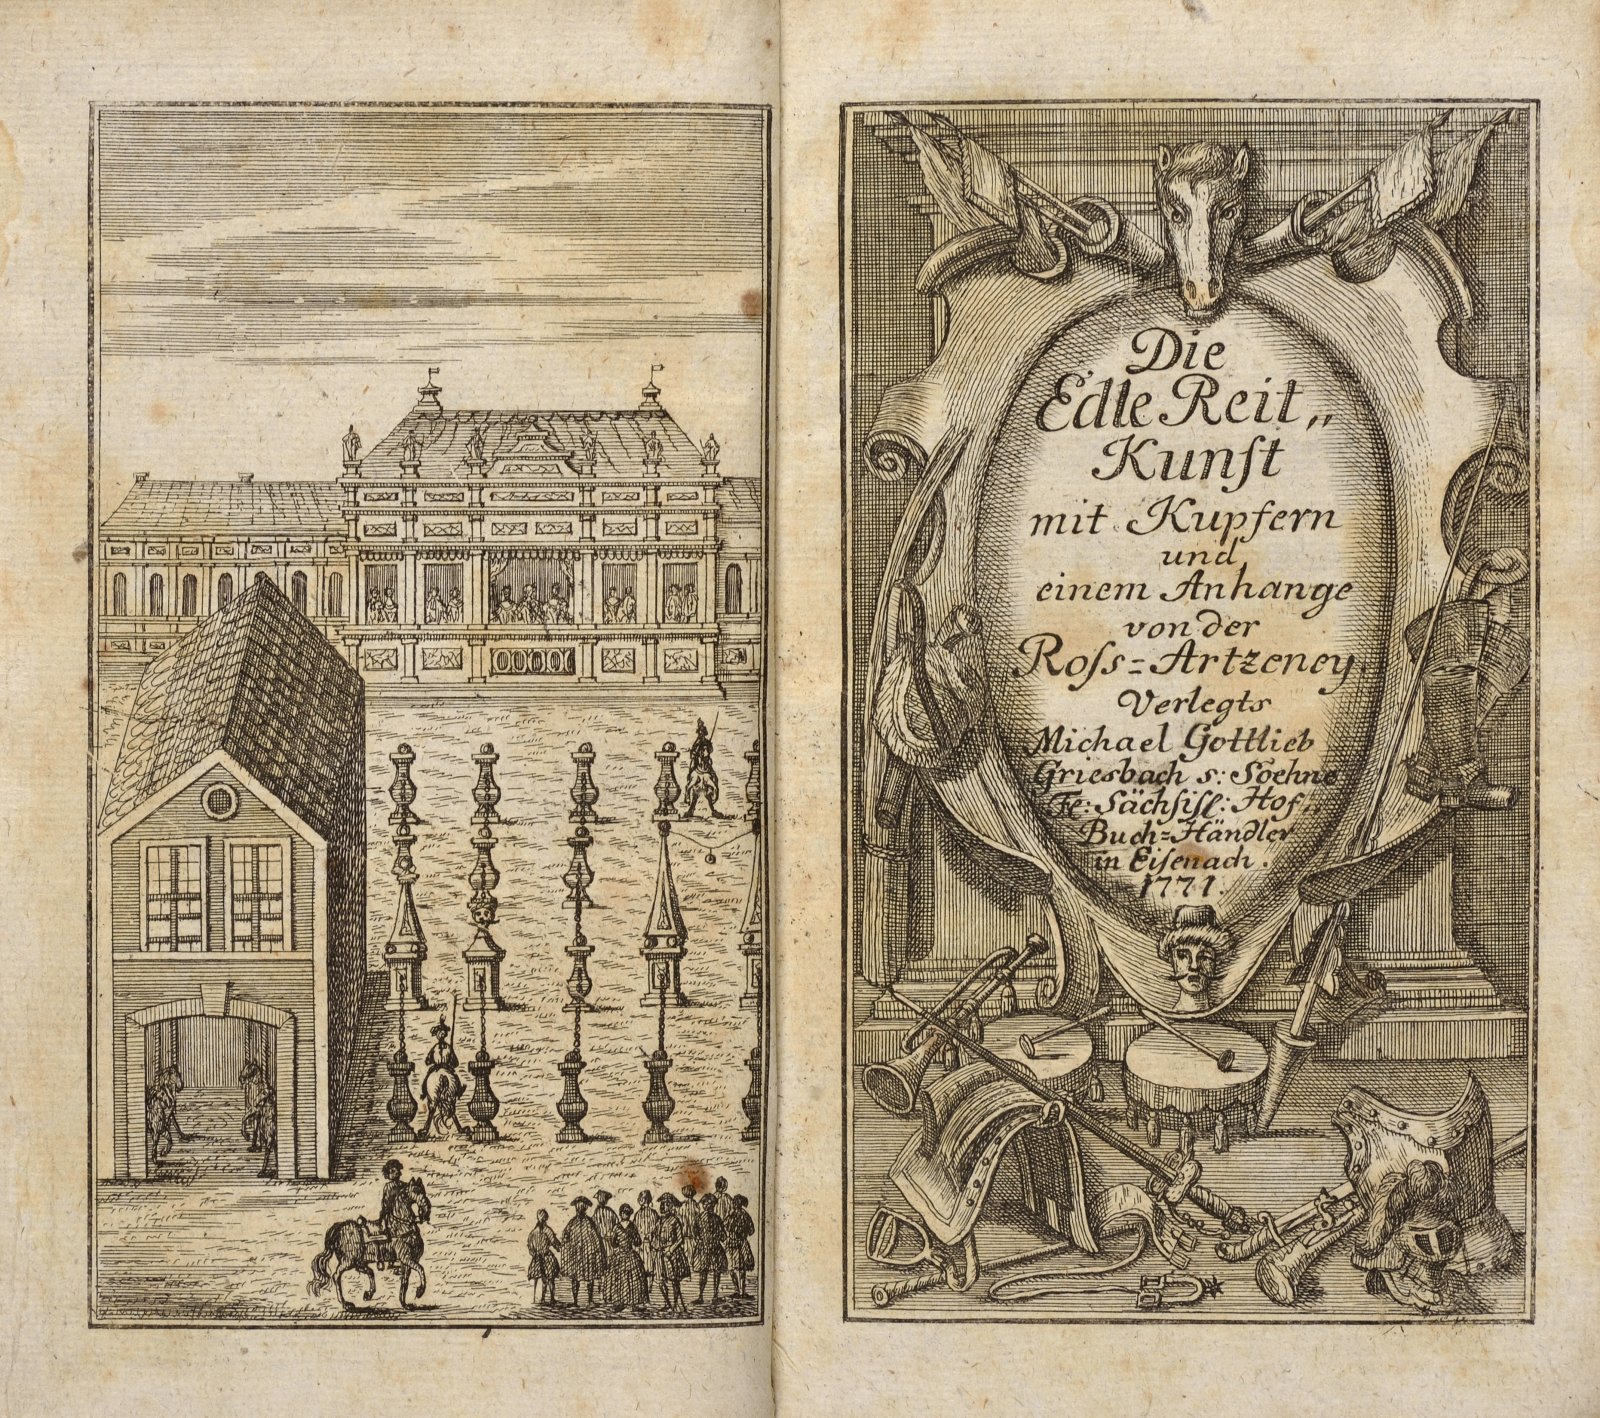 Die
Edle Reit„
Kunſt
mit Kupfern
und
einem Anhange
von der
Roſs=Artzeney
Verlegts
Michael Gottlieb
Griesbach s: Soehne
Sächſiſ: Hof„
Buch=Händler
in Eiſenach.
1771.